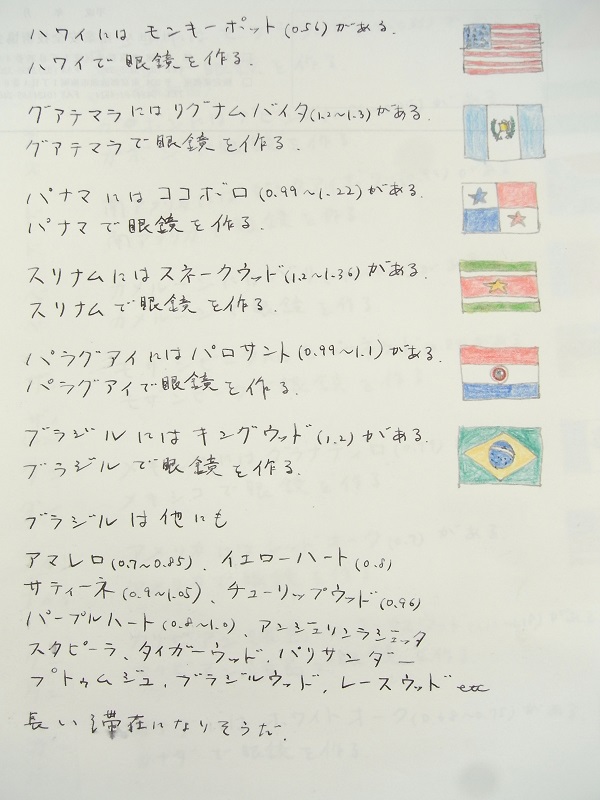 ハワイには モンキーポット(0.56)がある.
ハワイで 眼鏡を作る.
グアテマラには リグナムバイタ(1.2～1.3)がある.
グアテマラで 眼鏡を作る.
パナマには ココボロ(0.99～1.22)がある.
パナマで 眼鏡を作る.
スリナムには スネークウッド(1.2～1.36)がある.
スリナムで 眼鏡を作る.
パラグアイには パロサント(0.99～1.1)がある.
パラグアイで 眼鏡を作る.
ブラジルには キングウッド(1.2)がある.
ブラジルで 眼鏡を作る.
ブラジルは 他にも
アマレロ(0.7～0.85)、イエローハート(0.8)
サティーネ(0.9～1.05)、チューリップウッド(0.96)
パープルハート(0.8～1.0)、アンジェリンラジェッタ
スタピーラ、タイガーウッド、パリサンダー
プトゥムジュ、ブラジルウッド、レースウッド etc
長い滞在になりそうだ.